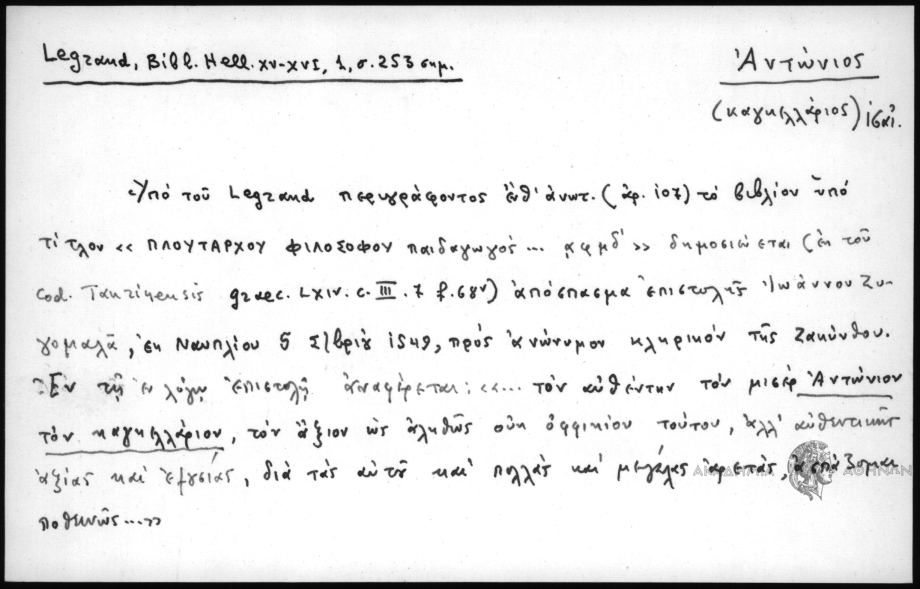 Legrand, Bibl. Hell. XV-XVI, 1, σ. 253 σημ.
Ἀντώνιος
(καγκελλάριος) ις΄ αἰ.
Ὑπό τοῦ Legrand περιγράφοντος ἔνθ' ἀνωτ. (ἀρ. 107) τό βιβλίον ὑπό
τίτλον «ΠΛΟΥΤΑΡΧΟΥ ΦΙΛΟΣΟΦΟΥ παιδαγωγός... αφμδ'» δημοσιεύεται (ἐκ τοῦ
cod. Taurinensis graec. LXIV. c. III. 7 f. 68v) ἀπόσπασμα ἐπιστολῆς Ἰωάννου Ζυ-
γομαλᾶ, ἐκ Ναυπλίου 5 Σ/βρίου 1549, πρός ἀνώνυμον κληρικόν τῆς Ζακύνθου.
Ἐν τῇ ἐν λόγῳ ἐπιστολῇ ἀναφέρεται: «... τόν αὐθέντην τόν μισέρ Ἀντώνιον
τόν καγκελλάριον, τόν ἄξιον ὡς ἀληθῶς οὐκ ὀφφικίου τούτου, ἀλλ' αὐθεντικῆς
ἀξίας καί ἐξουσίας, διά τάς αὐτοῦ καί πολλάς καί μεγάλας ἀρετάς, ἀσπάζομαι
ποθεινῶς...»
ΑΚΑΔΗΜΙΑ ΑΘΗΝΩΝ